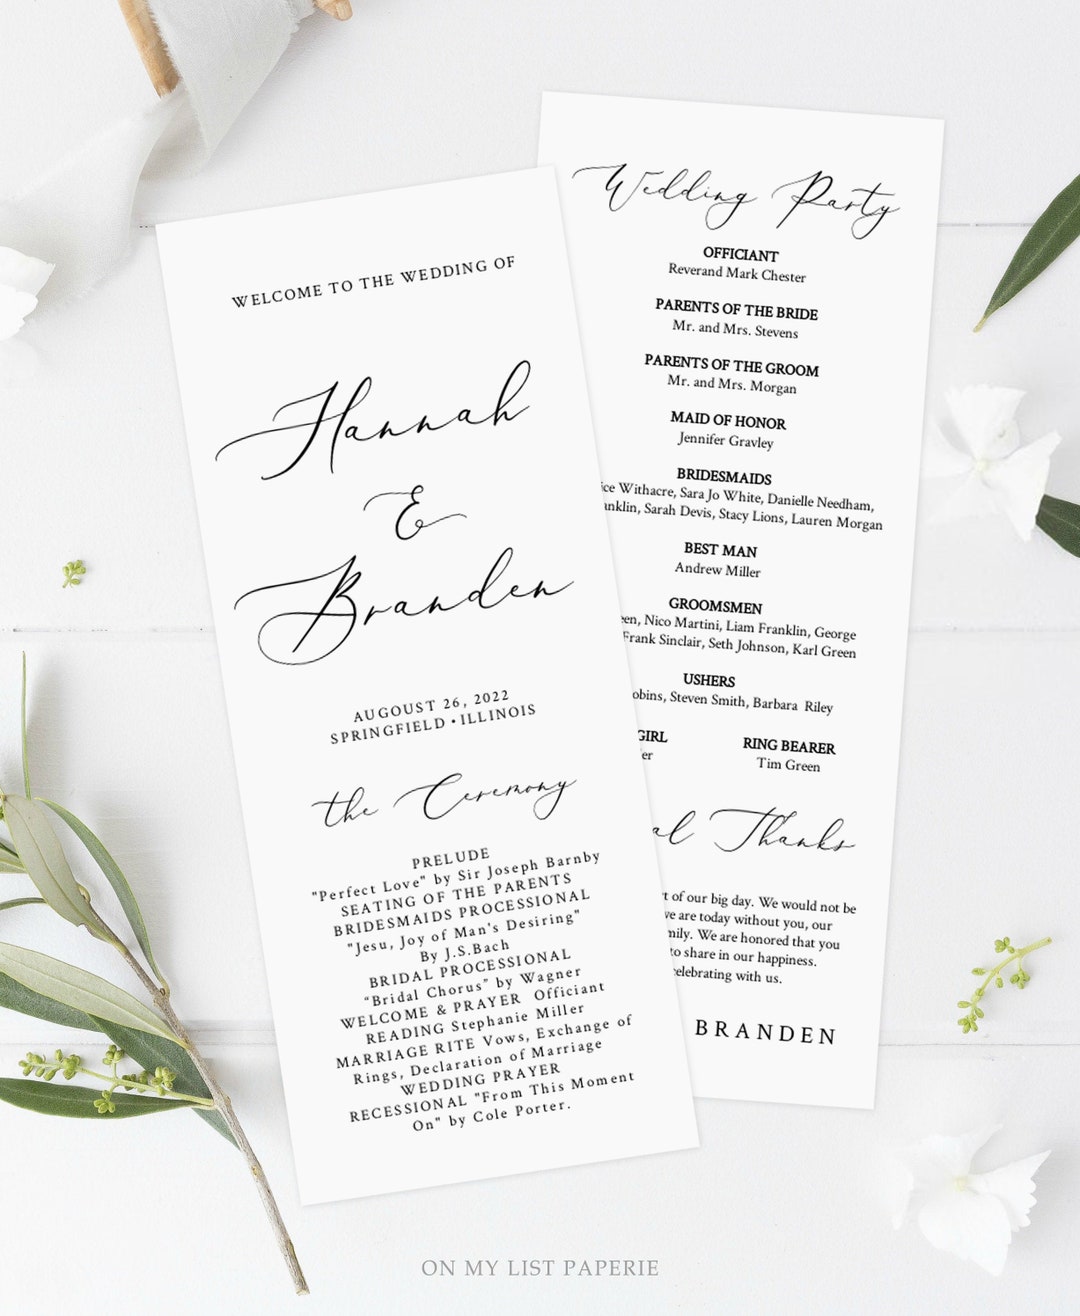 WELCOME TO THE WEDDING OF
Hannah
&
Branden
AUGOUST 26, 2022
SPRINGFIELD • ILLINOIS
the Ceremony
PRELUDE
"Perfect Love" by Sir Joseph Barnby
SEATING OF THE PARENTS
BRIDESMAIDS PROCESSIONAL
"Jesu, Joy of Man's Desiring"
By J.S.Bach
BRIDAL PROCESSIONAL
"Bridal Chorus" by Wagner
WELCOME & PRAYER Officiant
READING Stephanie Miller
MARRIAGE RITE Vows, Exchange of
Rings, Declaration of Marriage
WEDDING PRAYER
RECESSIONAL "From This Moment
On" by Cole Porter.
Wedding Party
OFFICIANT
Reverand Mark Chester
PARENTS OF THE BRIDE
Mr. and Mrs. Stevens
PARENTS OF THE GROOM
Mr. and Mrs. Morgan
MAID OF HONOR
Jennifer Gravley
BRIDESMAIDS
Withacre, Sara Jo White, Danielle Needham,
Sarah Devis, Stacy Lions, Lauren Morgan
BEST MAN
Andrew Miller
GROOMSMEN
Nico Martini, Liam Franklin, George
Frank Sinclair, Seth Johnson, Karl Green
USHERS
Steven Smith, Barbara Riley
GIRL RING BEARER
Tim Green
Thanks
of our big day. We would not be
we are today without you, our
We are honored that you
to share in our happiness.
celebrating with us.
BRANDEN
ON MY LIST PAPERIE